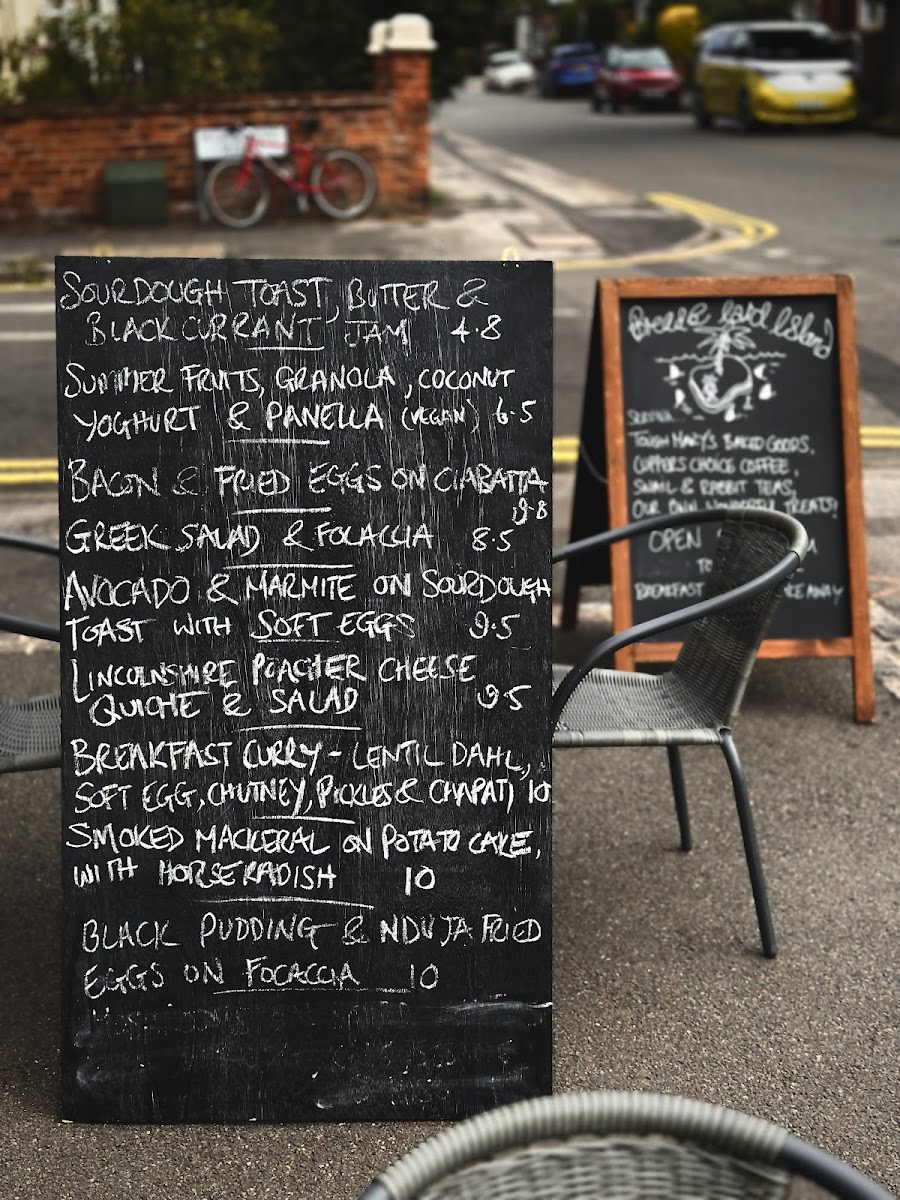 SOURDOUGH TOAST, BUTTER &
BLACKCURRANT JAM 4.8
SUMMER FRUITS, GRANOLA, COCONUT
YOGHURT & PANELLA (VEGAN) 6.5
BACON & FRIED EGGS ON CIABATTA
9.8
GREEK SALAD & FOLACCIA 8.5
AVOCADO & MARMITE ON SOURDOUGH
TOAST WITH SOFT EGGS 9.5
LINCOLNSHIRE POACHER CHEESE
QUICHE & SALAD 9.5
BREAKFAST CURRY - LENTIL DAHL,
SOFT EGG, CHUTNEY, PICKLES & CHAPATI 10
SMOKED MACKERAL ON POTATO CAKE,
WITH HORSERADISH 10
BLACK PUDDING & NDUJA FRIED
EGGS ON FOCACCIA 10
Island
TOUGH MARY'S BAKED GOODS,
CUPPERS CHOICE COFFEE,
SNAIL & RABBIT TEAS,
OUR OWN WONDERFUL TREATS!
OPEN
TO
BREAKFAST AWAY